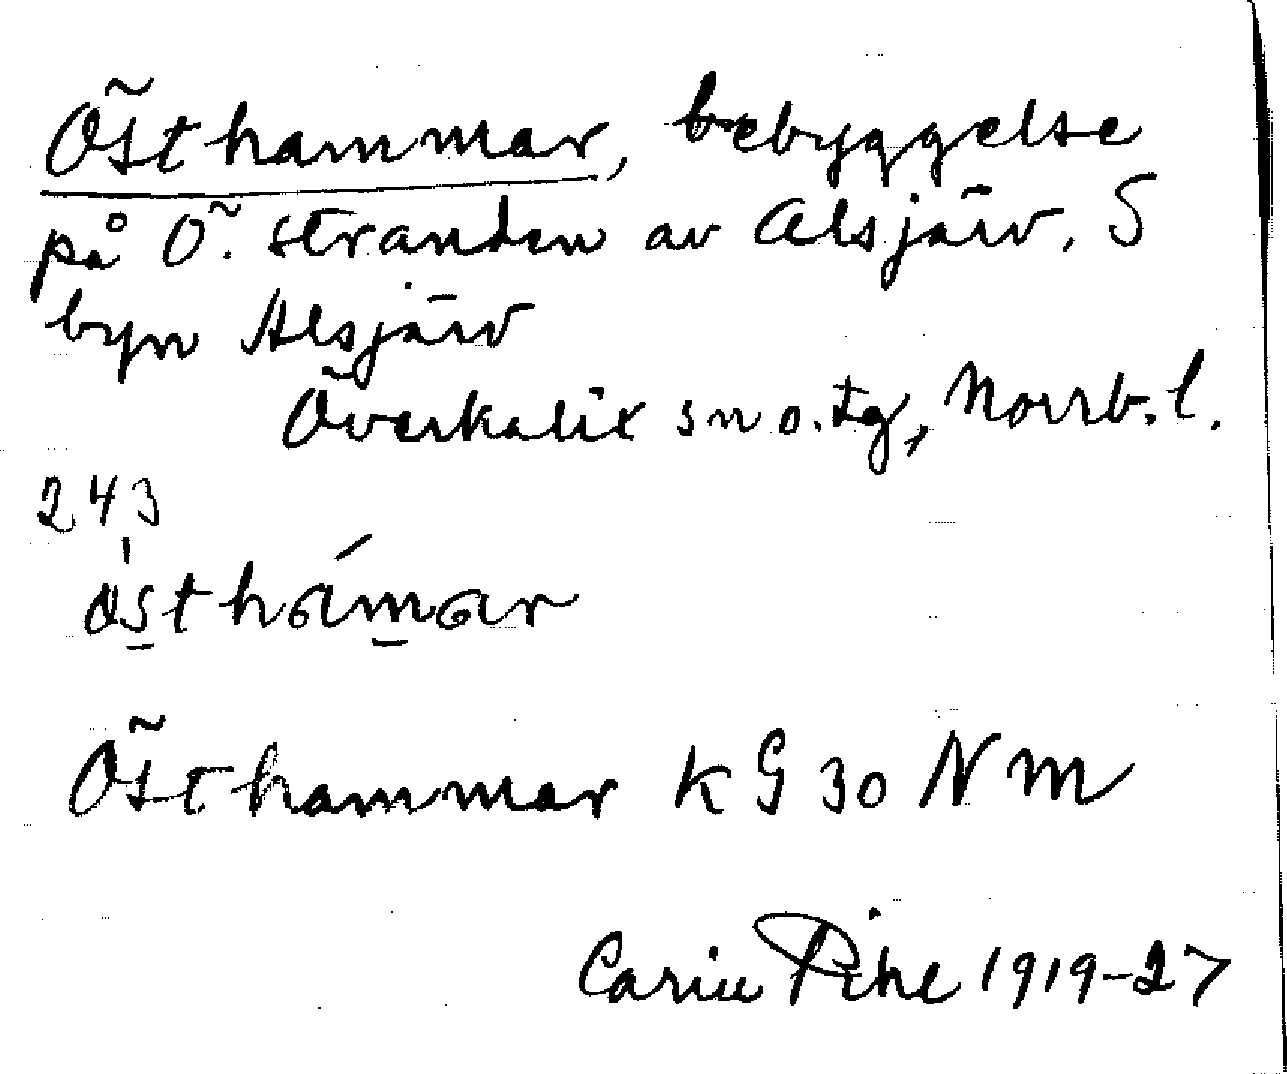 Östhammar, bebyggelse
på Ö. stranden av Alsjärv, S
byn Alsjärv
Överkalix sn o. tg, Norrb. l.
243
östhámar
Östhammar KG 30 NM
Carin Pihl 1919-27